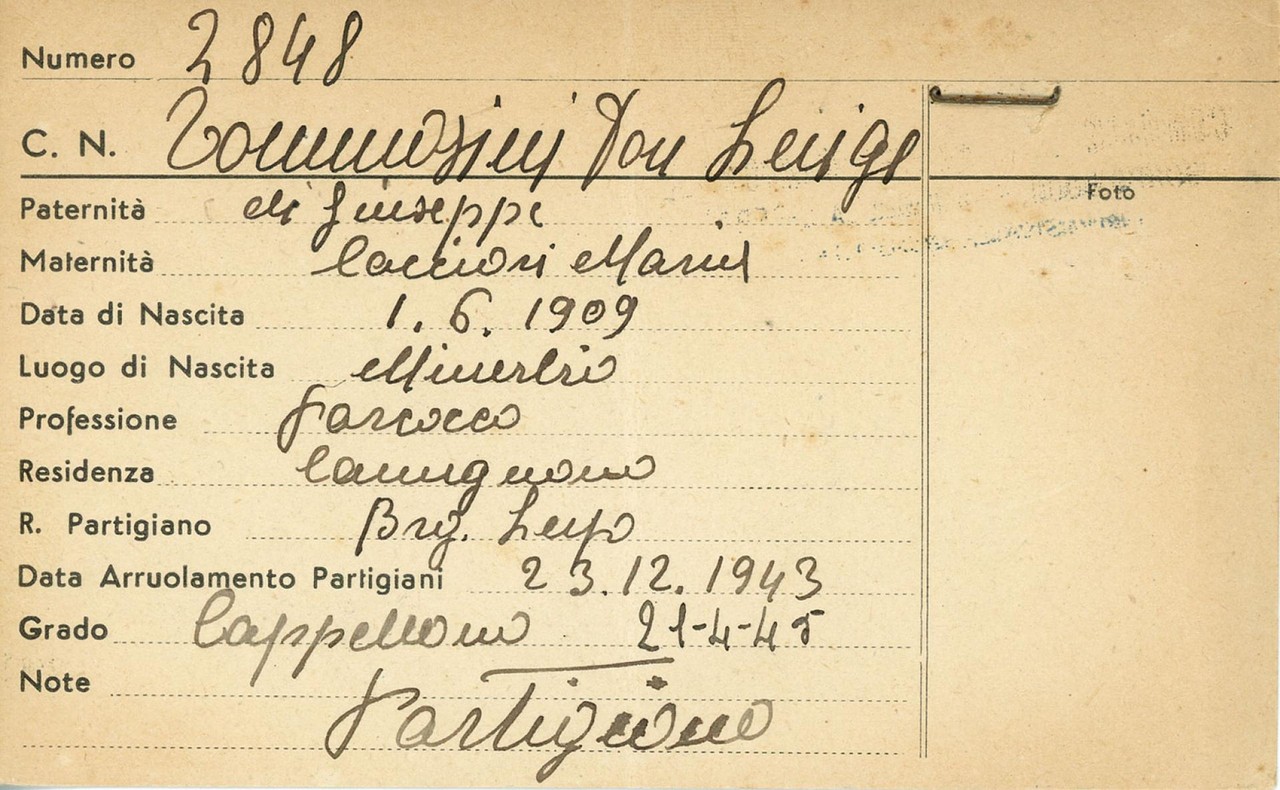 Numero 2848
C. N. Tommasini Don Luigi
Foto
Paternità di Giuseppe
Maternità Cacciari Maria
Data di Nascita 1.6.1909
Luogo di Nascita Minerbio
Professione Parroco
Residenza Camugnano
R. Partigiano Brg. Lupo
Data Arruolamento Partigiani 23.12.1943
Grado Cappellano 21-4-45
Note
Partigiano